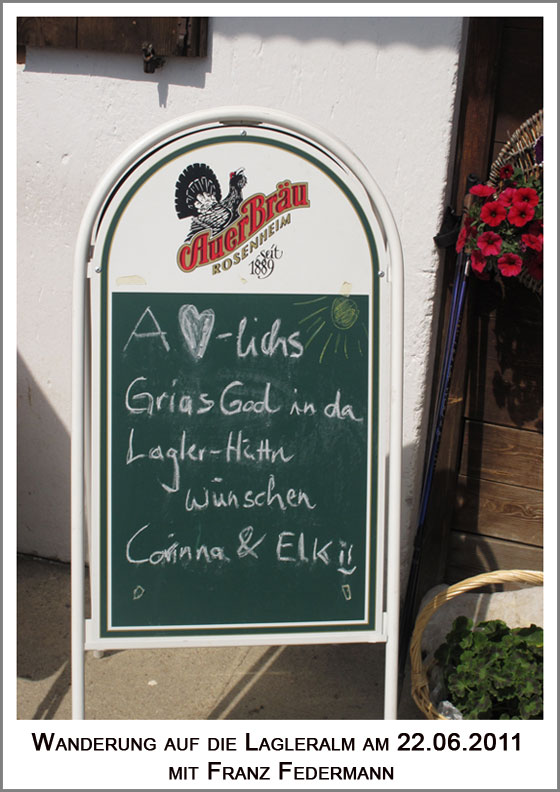 AuerBräu
ROSENHEIM
seit
1889
A ♥-lichs
Grias God in da
Lagler-Hüttn
wünschen
Corinna & Elki
WANDERUNG AUF DIE LAGLERALM AM 22.06.2011
MIT FRANZ FEDERMANN